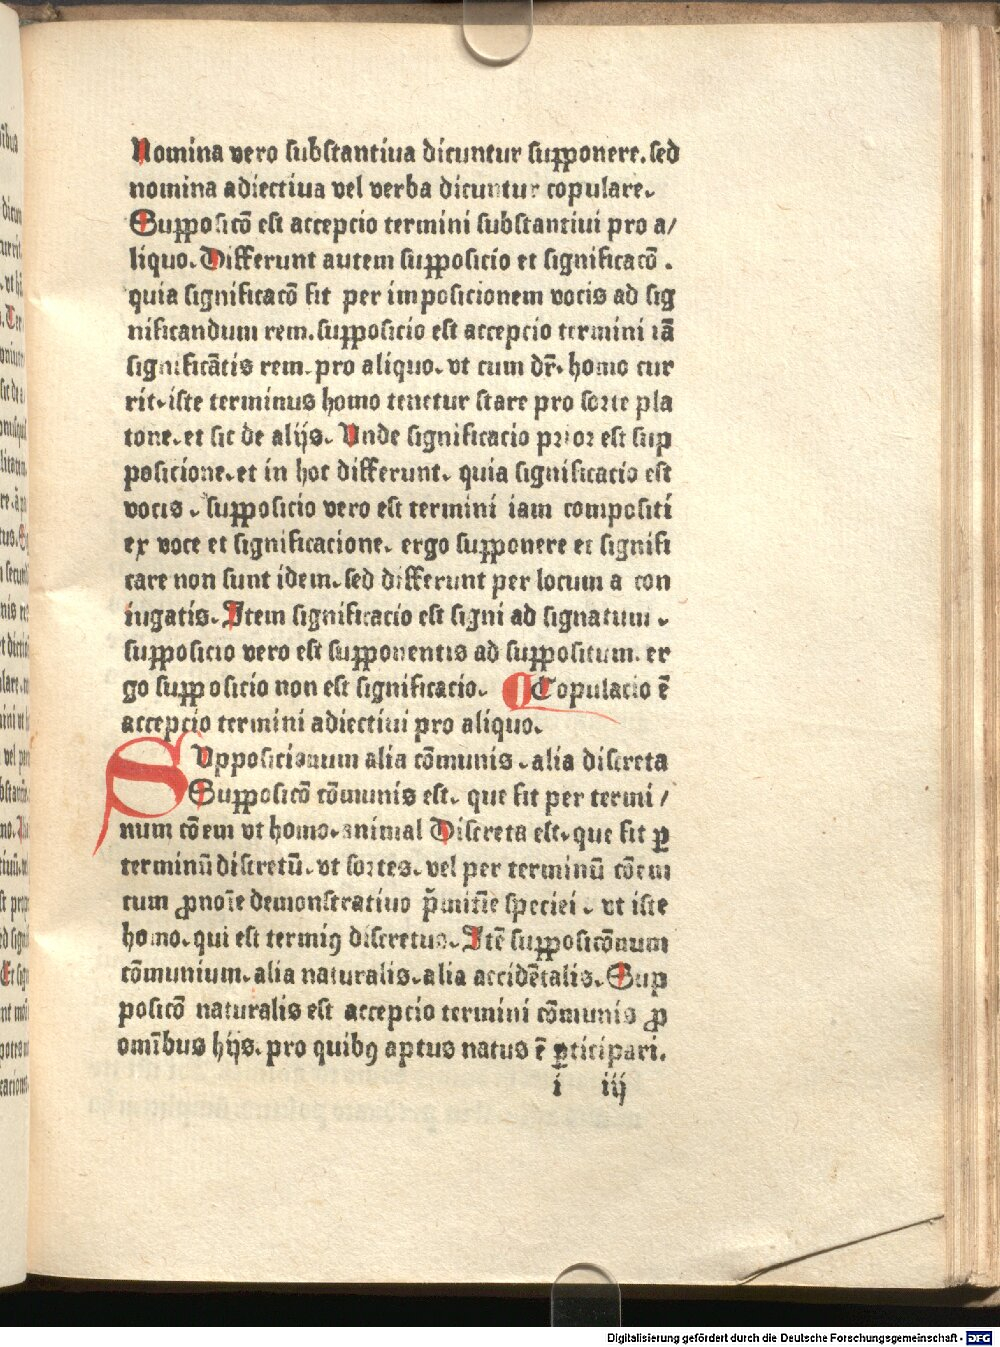 Nomina vero substantiua dicuntur supponere. sed
nomina adiectiua vel verba dicuntur copulare.
Supposicō est accepcio termini substantiui pro a/
liquo. Differunt autem supposicio et significacō.
quia significacō fit per imposicionem vocis ad sig
nificandum rem. supposicio est accepcio termini iā
significātis rem. pro aliquo. vt cum dr̄. homo cur
rit. iste terminus homo tenetur stare pro sorte pla
tone. et sic de alijs. Vnde significacio prior est sup
posicione. et in hoc differunt. quia significacio est
vocis. supposicio vero est termini iam compositi
ex voce et significacione. ergo supponere et signifi
care non sunt idem. sed differunt per locum a con
iugatis. Item significacio est signi ad signatum.
supposicio vero est supponentis ad suppositum. er
go supposicio non est significacio. Copulacio ē
accepcio termini adiectiui pro aliquo.
SVpposicionum alia cōmunis. alia discreta
Supposicō cōmunis est. que fit per termi/
num cōem vt homo. animal Discreta est. que fit ꝑ
terminū discretū. vt sortes. vel per terminū cōem
cum ꝓnoīe demonstratiuo p̄misse speciei. vt iste
homo. qui est terminꝰ discretus. Itē supposicōnum
cōmunium. alia naturalis. alia accidētalis. Sup
posicō naturalis est accepcio termini cōmunis ꝓ
omībus hijs. pro quibꝰ aptus natus ē ꝑticipari.
i iij
Digitalisierung gefördert durch die Deutsche Forschungsgemeinschaft - DFG